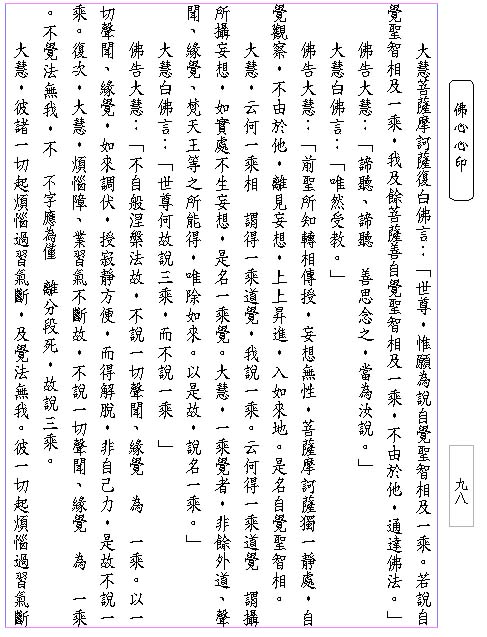 佛心心印
九八
大慧菩薩摩訶薩復白佛言：「世尊，惟願為說自覺聖智相及一乘。若說自
覺聖智相及一乘，我及餘菩薩善自覺聖智相及一乘，不由於他，通達佛法。」
佛告大慧：「諦聽、諦聽　善思念之，當為汝說。」
大慧白佛言：「唯然受教。」
佛告大慧：「前聖所知轉相傳授，妄想無性，菩薩摩訶薩獨一靜處，自
覺觀察，不由於他，離見妄想，上上昇進，入如來地。是名自覺聖智相。
大慧，云何一乘相　謂得一乘道覺，我說一乘。云何得一乘道覺　謂攝
所攝妄想，如實處不生妄想，是名一乘覺。大慧，一乘覺者，非餘外道、聲
聞、緣覺、梵天王等之所能得，唯除如來。以是故，說名一乘。」
大慧白佛言：「世尊何故說三乘，而不說一乘　」
佛告大慧：「不自般涅槃法故，不說一切聲聞、緣覺　為　一乘。以一
切聲聞、緣覺，如來調伏，授寂靜方便，而得解脫，非自己力，是故不說一
乘。復次，大慧，煩惱障、業習氣不斷故，不說一切聲聞、緣覺　為　一乘
。不覺法無我，不　不字應為僅　離分段死，故說三乘。
大慧，彼諸一切起煩惱過習氣斷，及覺法無我。彼一切起煩惱過習氣斷